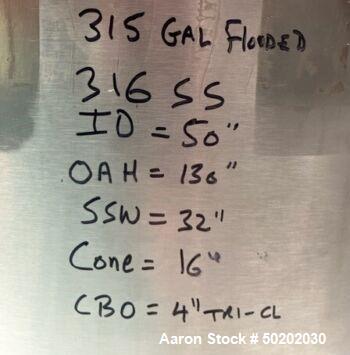 315 GAL FLOODED
316 SS
ID = 50"
OAH = 130"
SSW = 32"
Cone = 16"
CBO = 4" TRI-CL
Aaron Stock # 50202030